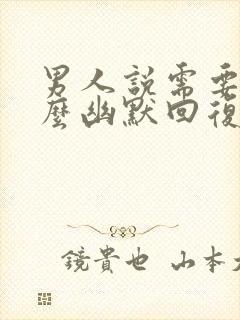 男人説需要
麼幽默回復
鏡貴也 山本